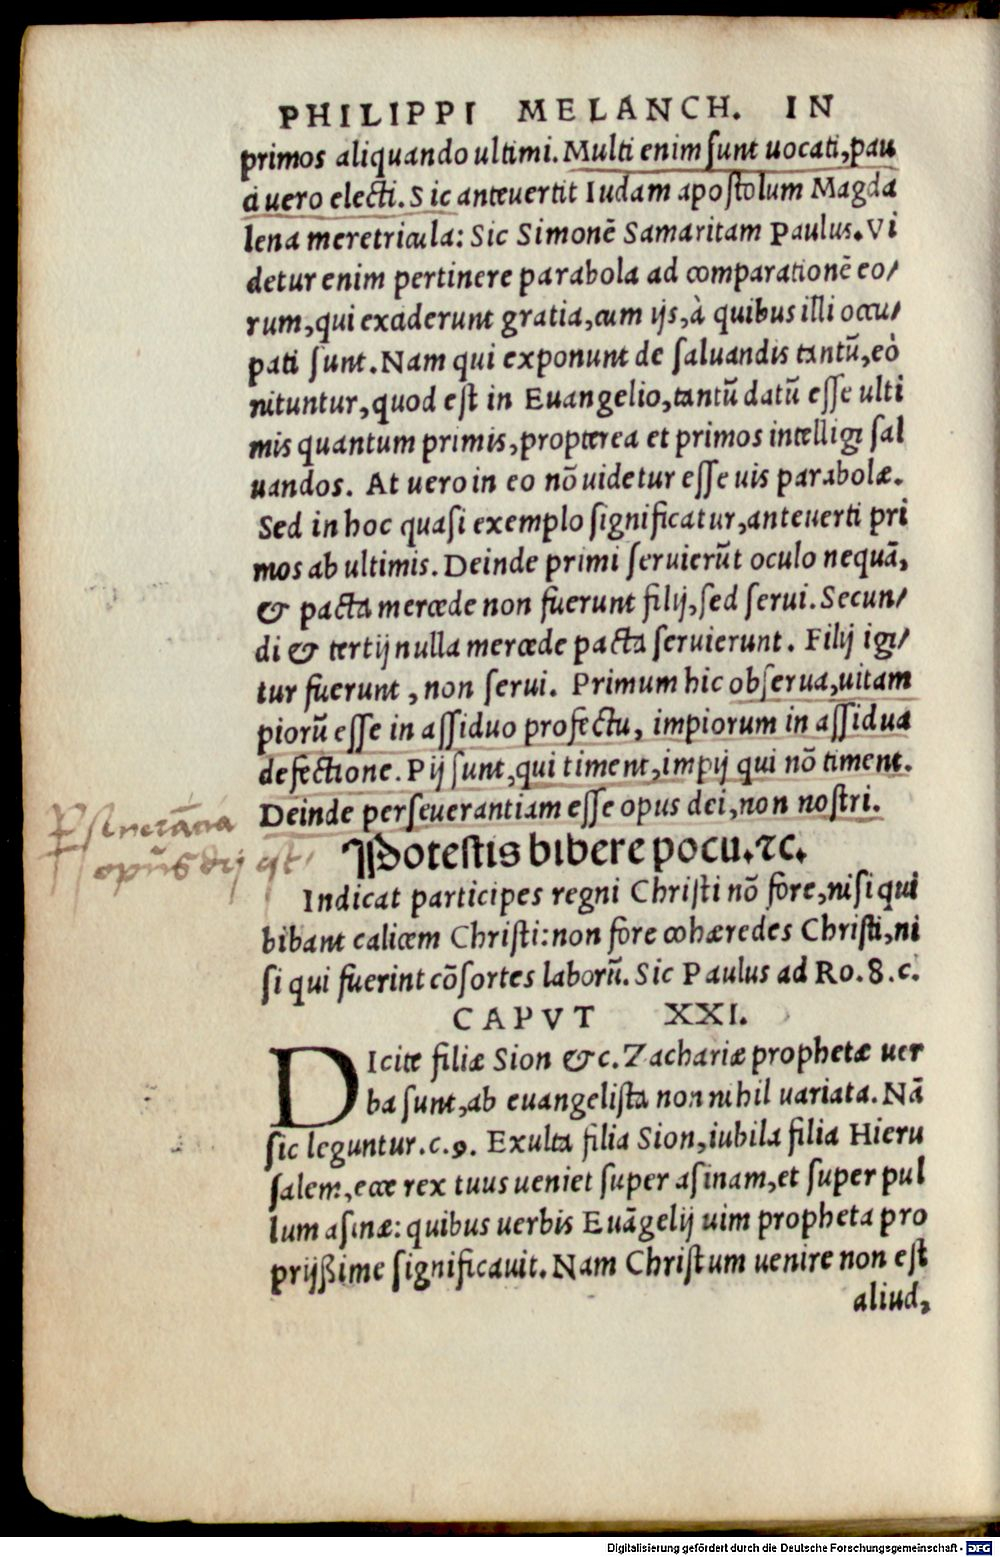 PHILIPPI MELANCH. IN
primos aliquando ultimi. Multi enim sunt uocati, pau
ci uero electi. Sic anteuertit Iudam apostolum Magda
lena meretricula: Sic Simonē Samaritam Paulus. Vi
detur enim pertinere parabola ad comparationē eo/
rum, qui exciderunt gratia, cum ijs, à quibus illi occu/
pati sunt. Nam qui exponunt de saluandis tantū, eò
nituntur, quod est in Euangelio, tantū datū esse ulti
mis quantum primis, propterea et primos intelligi sal
uandos. At uero in eo nō uidetur esse uis parabolæ.
Sed in hoc quasi exemplo significatur, anteuerti pri
mos ab ultimis. Deinde primi seruierūt oculo nequā,
& pacta mercede non fuerunt filij, sed serui. Secun/
di & tertij nulla mercede pacta seruierunt. Filij igi/
tur fuerunt, non serui. Primum hic obserua, uitam
piorū esse in assiduo profectu, impiorum in assidua
defectione. Pij sunt, qui timent, impij qui nō timent.
Deinde perseuerantiam esse opus dei, non nostri.
opus dij est
Potestis bibere pocu. ⁊c.
Indicat participes regni Christi nō fore, nisi qui
bibant calicem Christi: non fore cohæredes Christi, ni
si qui fuerint cōsortes laborū. Sic Paulus ad Ro. 8. c.
CAPVT XXI.
DIcite filiæ Sion &c. Zachariæ prophetæ uer
ba sunt, ab euangelista non nihil uariata. Nā
sic leguntur. c. 9. Exulta filia Sion, iubila filia Hieru
salem, ecce rex tuus ueniet super asinam, et super pul
lum asinæ: quibus uerbis Euāgelij uim propheta pro
prijßime significauit. Nam Christum uenire non est
aliud,
Digitalisierung gefördert durch die Deutsche Forschungsgemeinschaft - DFG